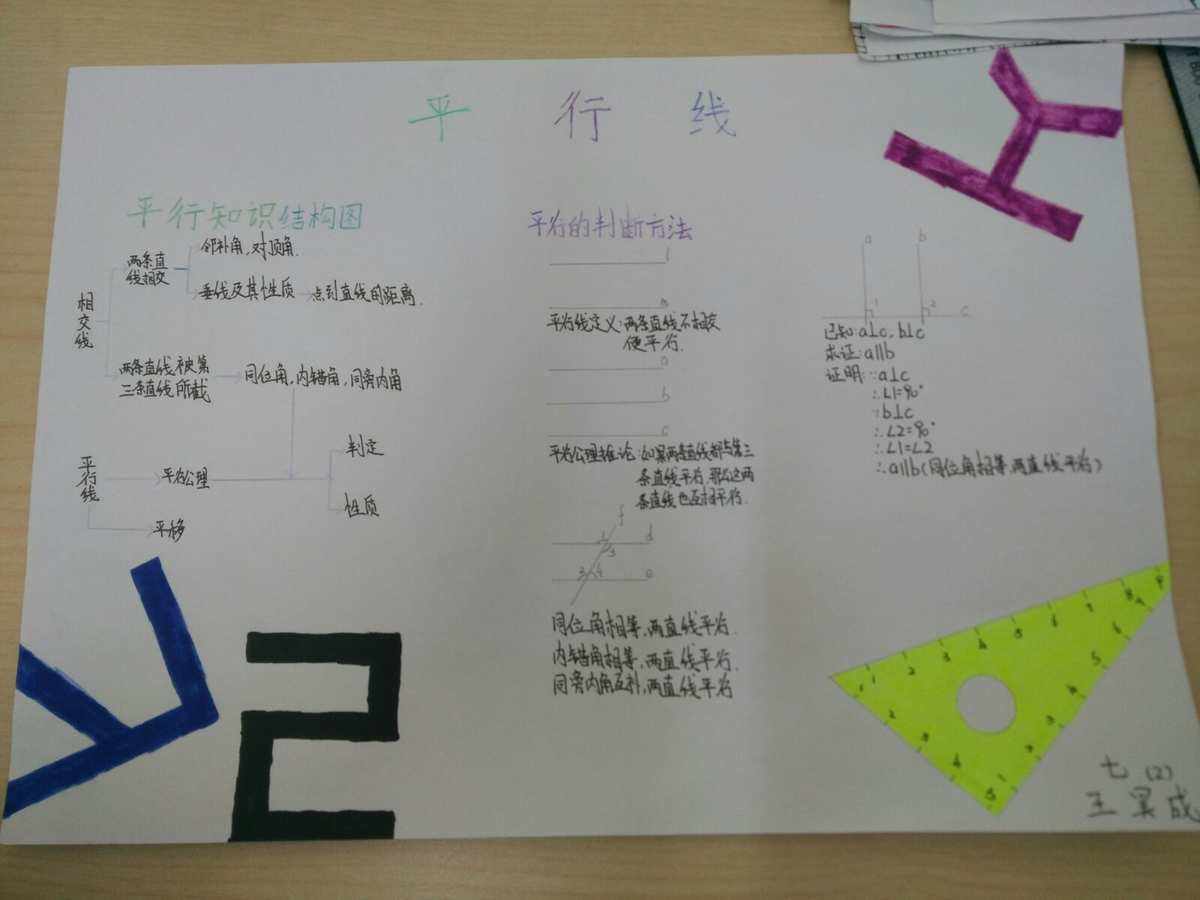 平行线
平行知识结构图
相交线
两条直
线相交
邻补角,对顶角.
垂线及其性质
点到直线的距离.
两条直线被第
三条直线所截
同位角,内错角,同旁内角
平行线
平行公理
判定
性质
平移
平行的判断方法
平行线定义:两条直线不相交
便平行.
a
b
c
平行公理推论:如果两条直线都与第三
条直线平行,那么这两
条直线也互相平行.
f
d
3
3 4
e
同位角相等,两直线平行.
内错角相等,两直线平行.
同旁内角互补,两直线平行
a b
1 2 c
已知:a⊥c,b⊥c
求证:a∥b
证明:∵a⊥c
∴∠1=90°
∵b⊥c
∴∠2=90°
∴∠1=∠2
∴a∥b(同位角相等,两直线平行)
1 2 3 4 5 6 7 8 9
七(2)
王 成